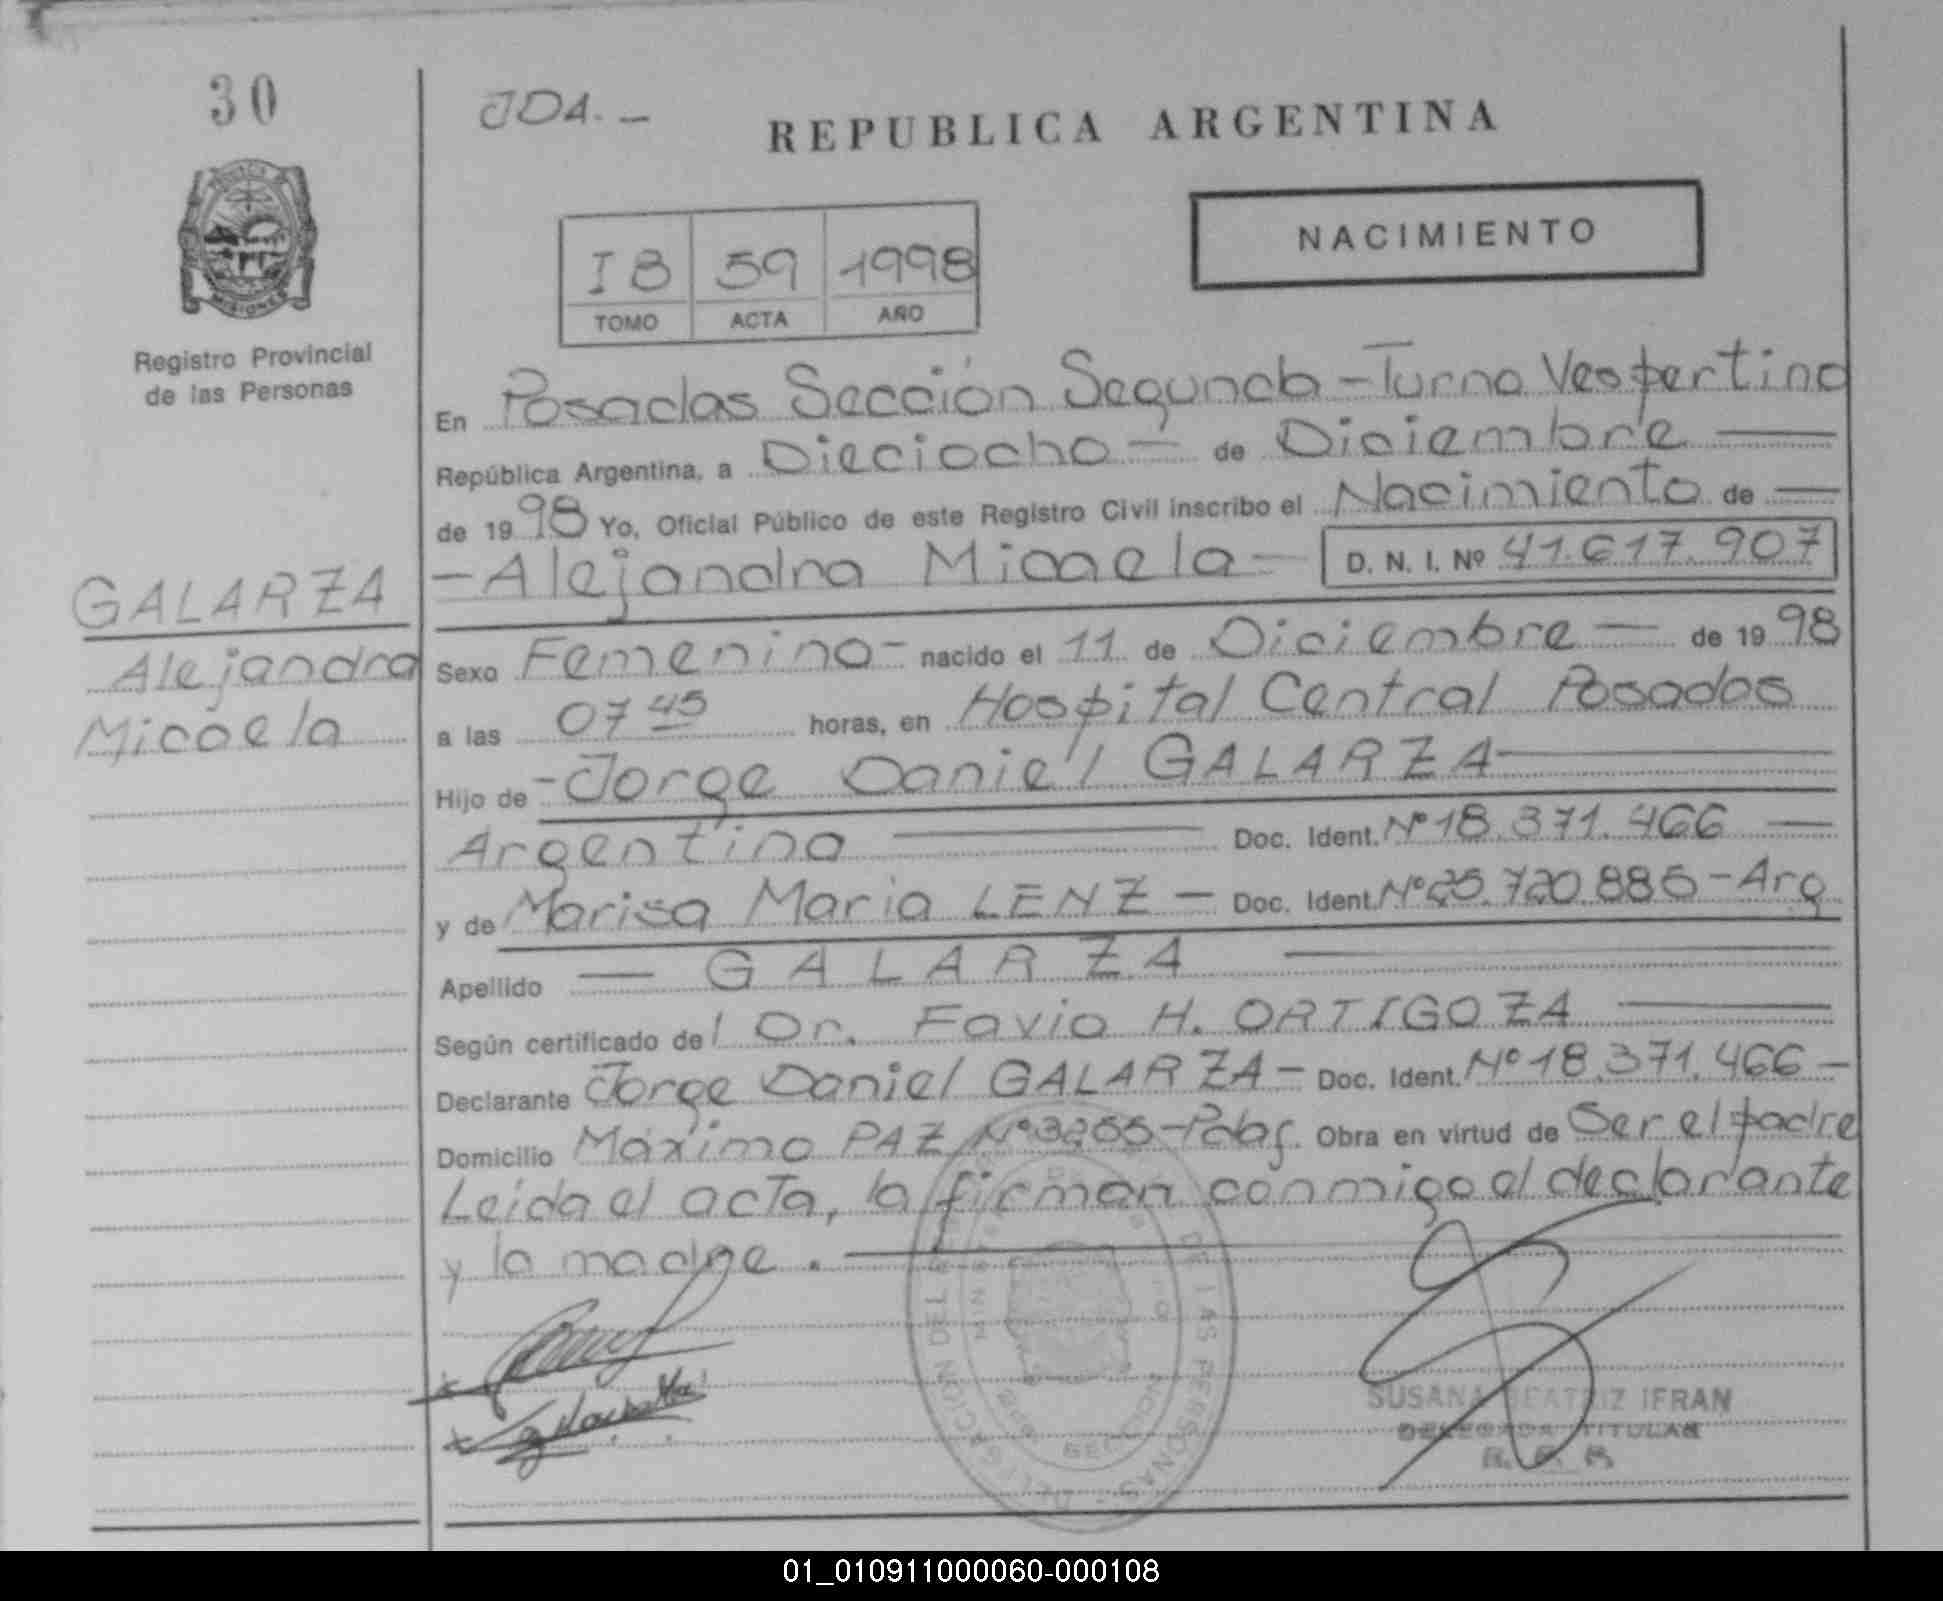 30
JDA. -
REPUBLICA ARGENTINA
MISIONES
Registro Provincial
de las Personas
I B 59 1998
TOMO ACTA AÑO
NACIMIENTO
En Posadas Sección Segunda - Turno Vespertino
República Argentina, a Dieciocho - de Diciembre —
de 1998 Yo, Oficial Público de este Registro Civil inscribo el Nacimiento de —
- Alejandra Micaela - D. N. I. Nº 41.617.907
GALARZA
Alejandra
Micaela
Sexo Femenino - nacido el 11 de Diciembre — de 1998
a las 07 45 horas, en Hospital Central Posadas
Hijo de - Jorge Daniel GALARZA —
Argentino — Doc. Ident. Nº 18.371.466 —
y de Marisa Maria LENZ - Doc. Ident. Nº 25.720.886 - Arg
Apellido — GALARZA —
Según certificado del Dr. Favio H. ORTIGOZA —
Declarante Jorge Daniel GALARZA - Doc. Ident. Nº 18.371.466 -
Domicilio Máximo PAZ Nº Pdas. Obra en virtud de Ser el padre
Leida el acta, la firman conmigo el declarante
y la madre. —
DELEGACION DE LAS PERSONAS
SUSANA BEATRIZ IFRAN
DELEGADA TITULAR
01_010911000060-000108